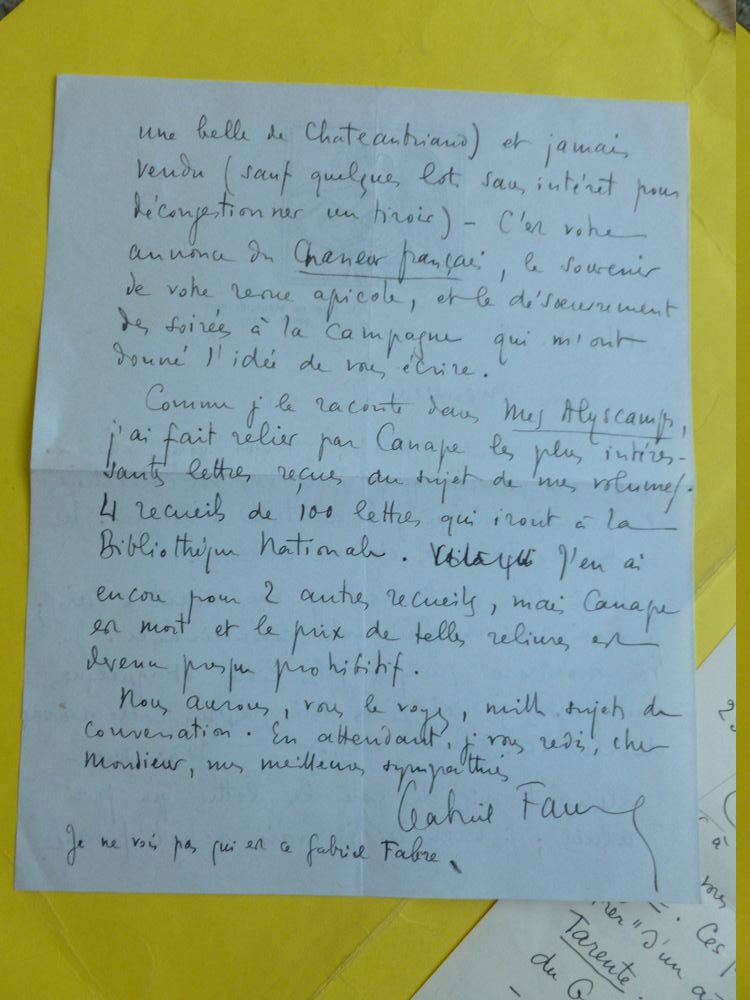 une belle de Chateaubriand) et jamais
vendu (sauf quelques lots sans intérêt pour
décongestionner un tiroir) – C'est votre
annonce du Chasseur français, le souvenir
de votre revue apicole, et le désœuvrement
des soirées à la campagne qui m'ont
donné l'idée de vous écrire.
Comme je le raconte dans Mes Alyscamps,
j'ai fait relier par Canape les plus intéres-
santes lettres reçues au sujet de mes volumes.
4 recueils de 100 lettres qui iront à la
Bibliothèque Nationale. J'en ai
encore pour 2 autres recueils, mais Canape
est mort et le prix de telles reliures est
devenu presque prohibitif.
Nous aurons, vous le voyez, mille sujets de
conversation. En attendant, je vous redis, cher
Monsieur, mes meilleures sympathies
Gabriel Faure
Je ne vois pas qui est ce Gabriel Fabre.
à
vous
. Ces
" d'un
Tarente.
du